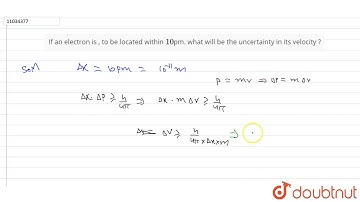 11034377
If an electron is , to be located within 10pm. what will be the uncertainty in its velocity ?
Soln Δx = 10 pm = 10⁻¹¹ m
P = mv ⇒ ΔP = m Δv
Δx. ΔP ≥ h/4π ⇒ Δx · m Δv ≥ h/4π
Δv ≥ h/4π×Δx×m ⇒
doubtnut